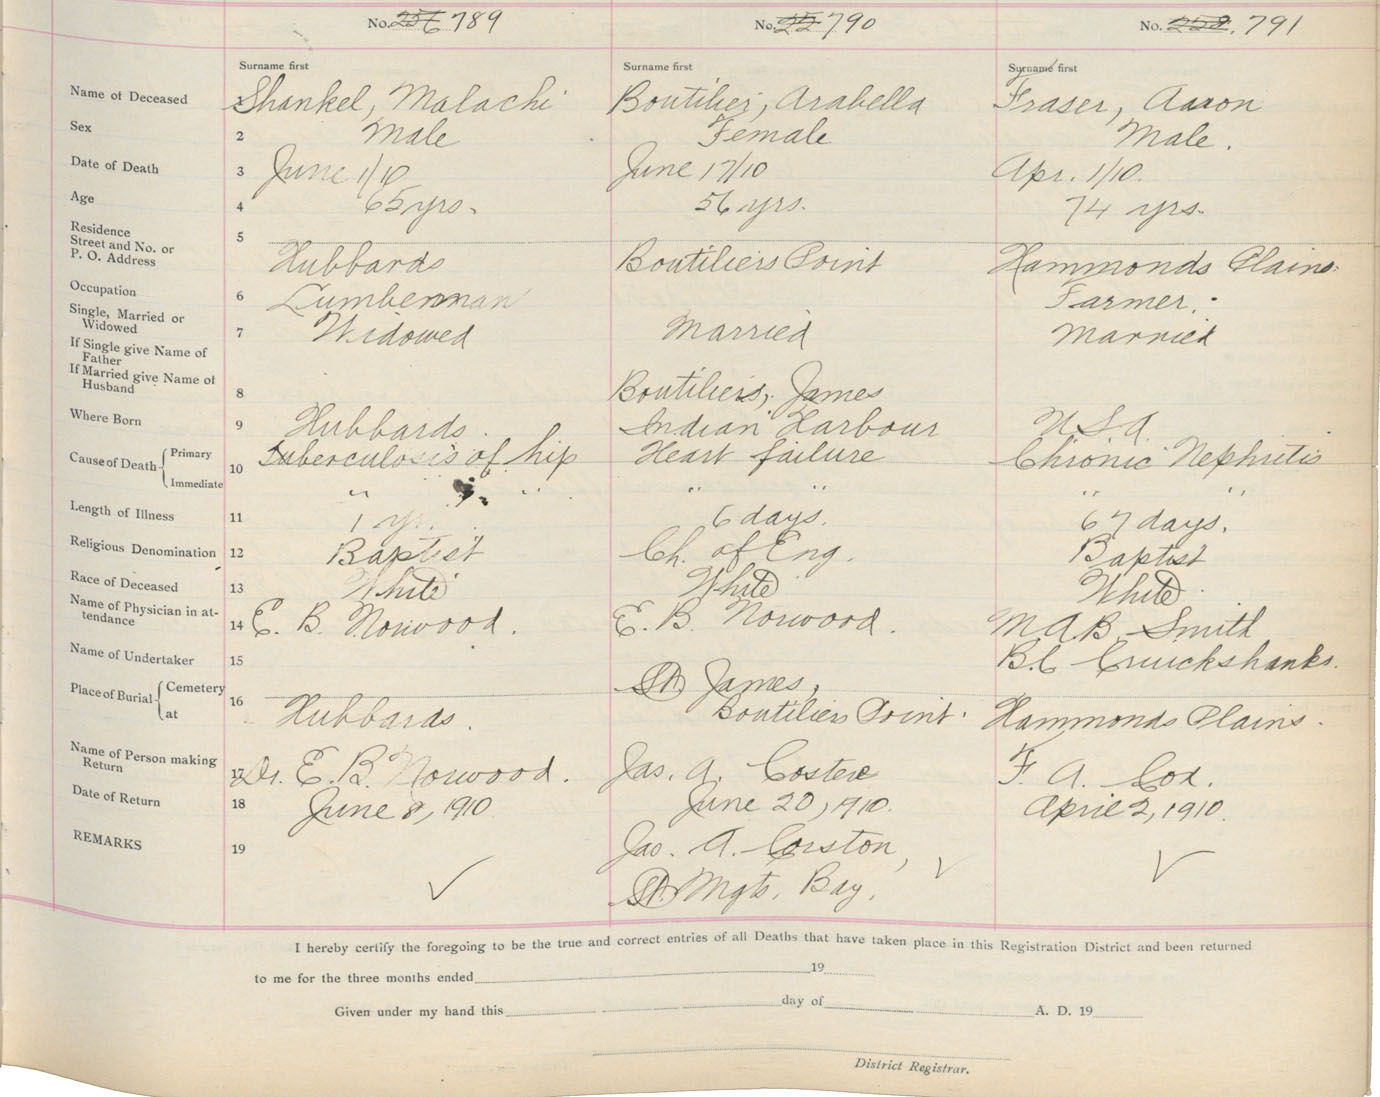 No. 256 789 No. 790 No. 791
Surname first Surname first Surname first
Name of Deceased 1 Shankel, Malachi Boutilier, Arabella Fraser, Aaron
Sex 2 Male Female Male.
Date of Death 3 June 1/10 June 17/10 Apr. 1/10.
Age 4 65 yrs. 56 yrs. 74 yrs.
Residence
Street and No. or
P. O. Address 5 Hubbards Boutiliers Point Hammonds Plains.
Occupation 6 Lumberman Farmer.
Single, Married or
Widowed 7 Widowed Married Married
If Single give Name of
Father
If Married give Name of
Husband 8 Boutiliers, James
Where Born 9 Hubbards. Indian Harbour U.S.A.
Cause of Death { Primary 10 Tuberculosis of hip Heart failure Chronic Nephritis
Immediate " " " " " " "
Length of Illness 11 1 yr. 6 days. 67 days.
Religious Denomination 12 Baptist Ch. of Eng. Baptist
Race of Deceased 13 White White White
Name of Physician in at-
tendance 14 E. B. Norwood. E. B. Norwood. M. A. B. Smith
Name of Undertaker 15 B.C Cruickshanks.
Place of Burial { Cemetery 16 St James,
at Hubbards. Boutiliers Point. Hammonds Plains.
Name of Person making
Return 17 Dr. E. B. Norwood. Jas. A. Coster F. A. Cox.
Date of Return 18 June 8, 1910 June 20, 1910. April 2, 1910.
REMARKS 19 Jas. A. Corston,
St Mgts. Bay.
I hereby certify the foregoing to be the true and correct entries of all Deaths that have taken place in this Registration District and been returned
to me for the three months ended 19
Given under my hand this day of A. D. 19
District Registrar.